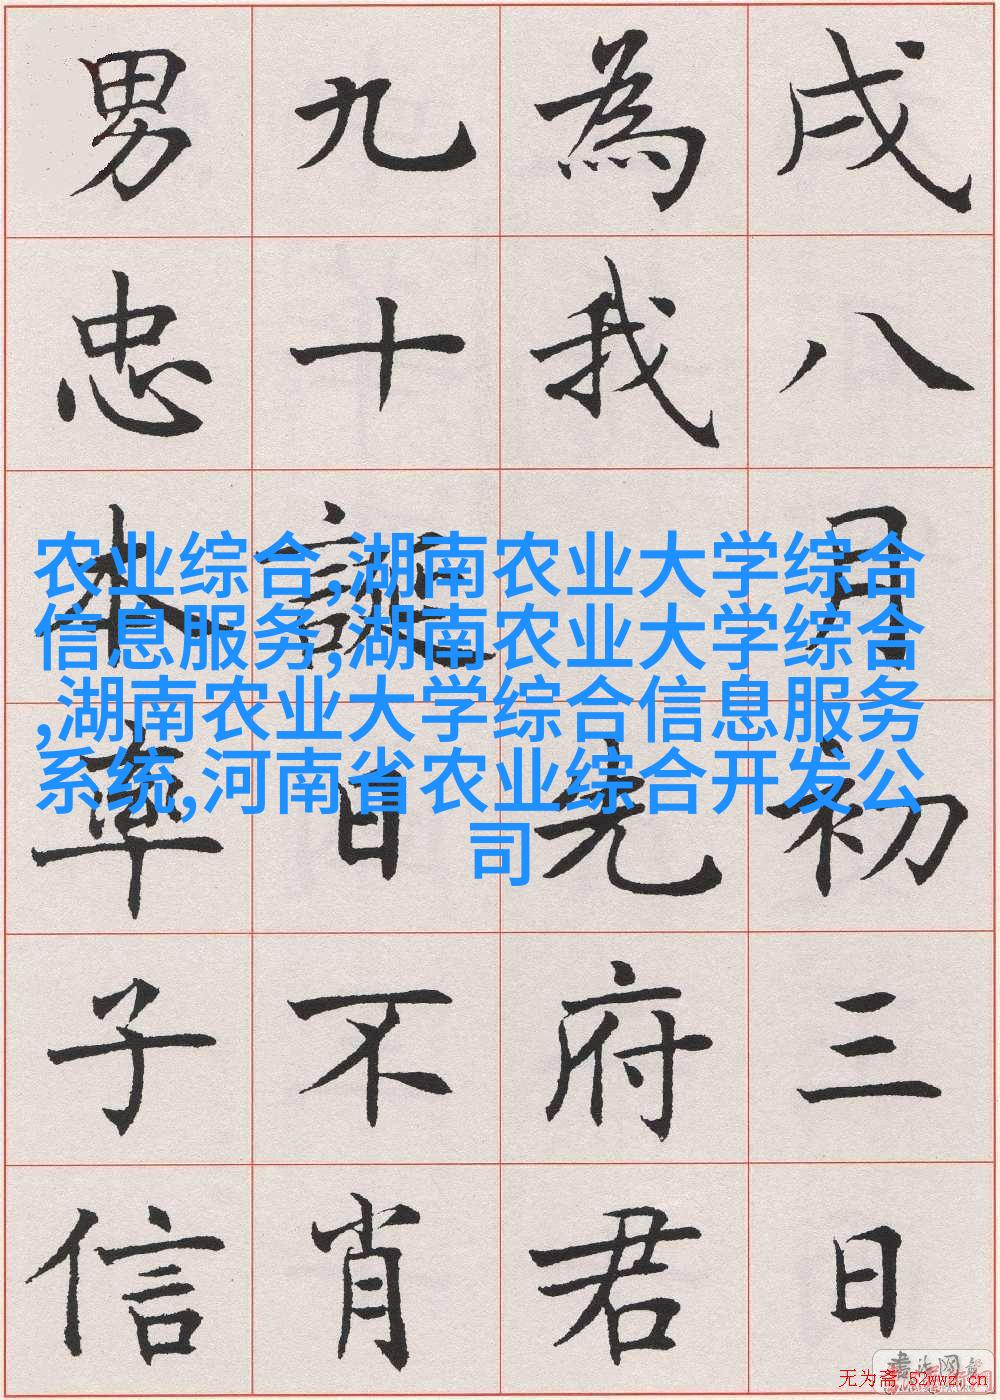 戌八月初三日
為我先府君
九十誕日不肖
男忠本率子信
农业综合,湖南农业大学综合
信息服务,湖南农业大学综合
,湖南农业大学综合信息服务
系统,河南省农业综合开发公
司
无为斋 52wwz.cn